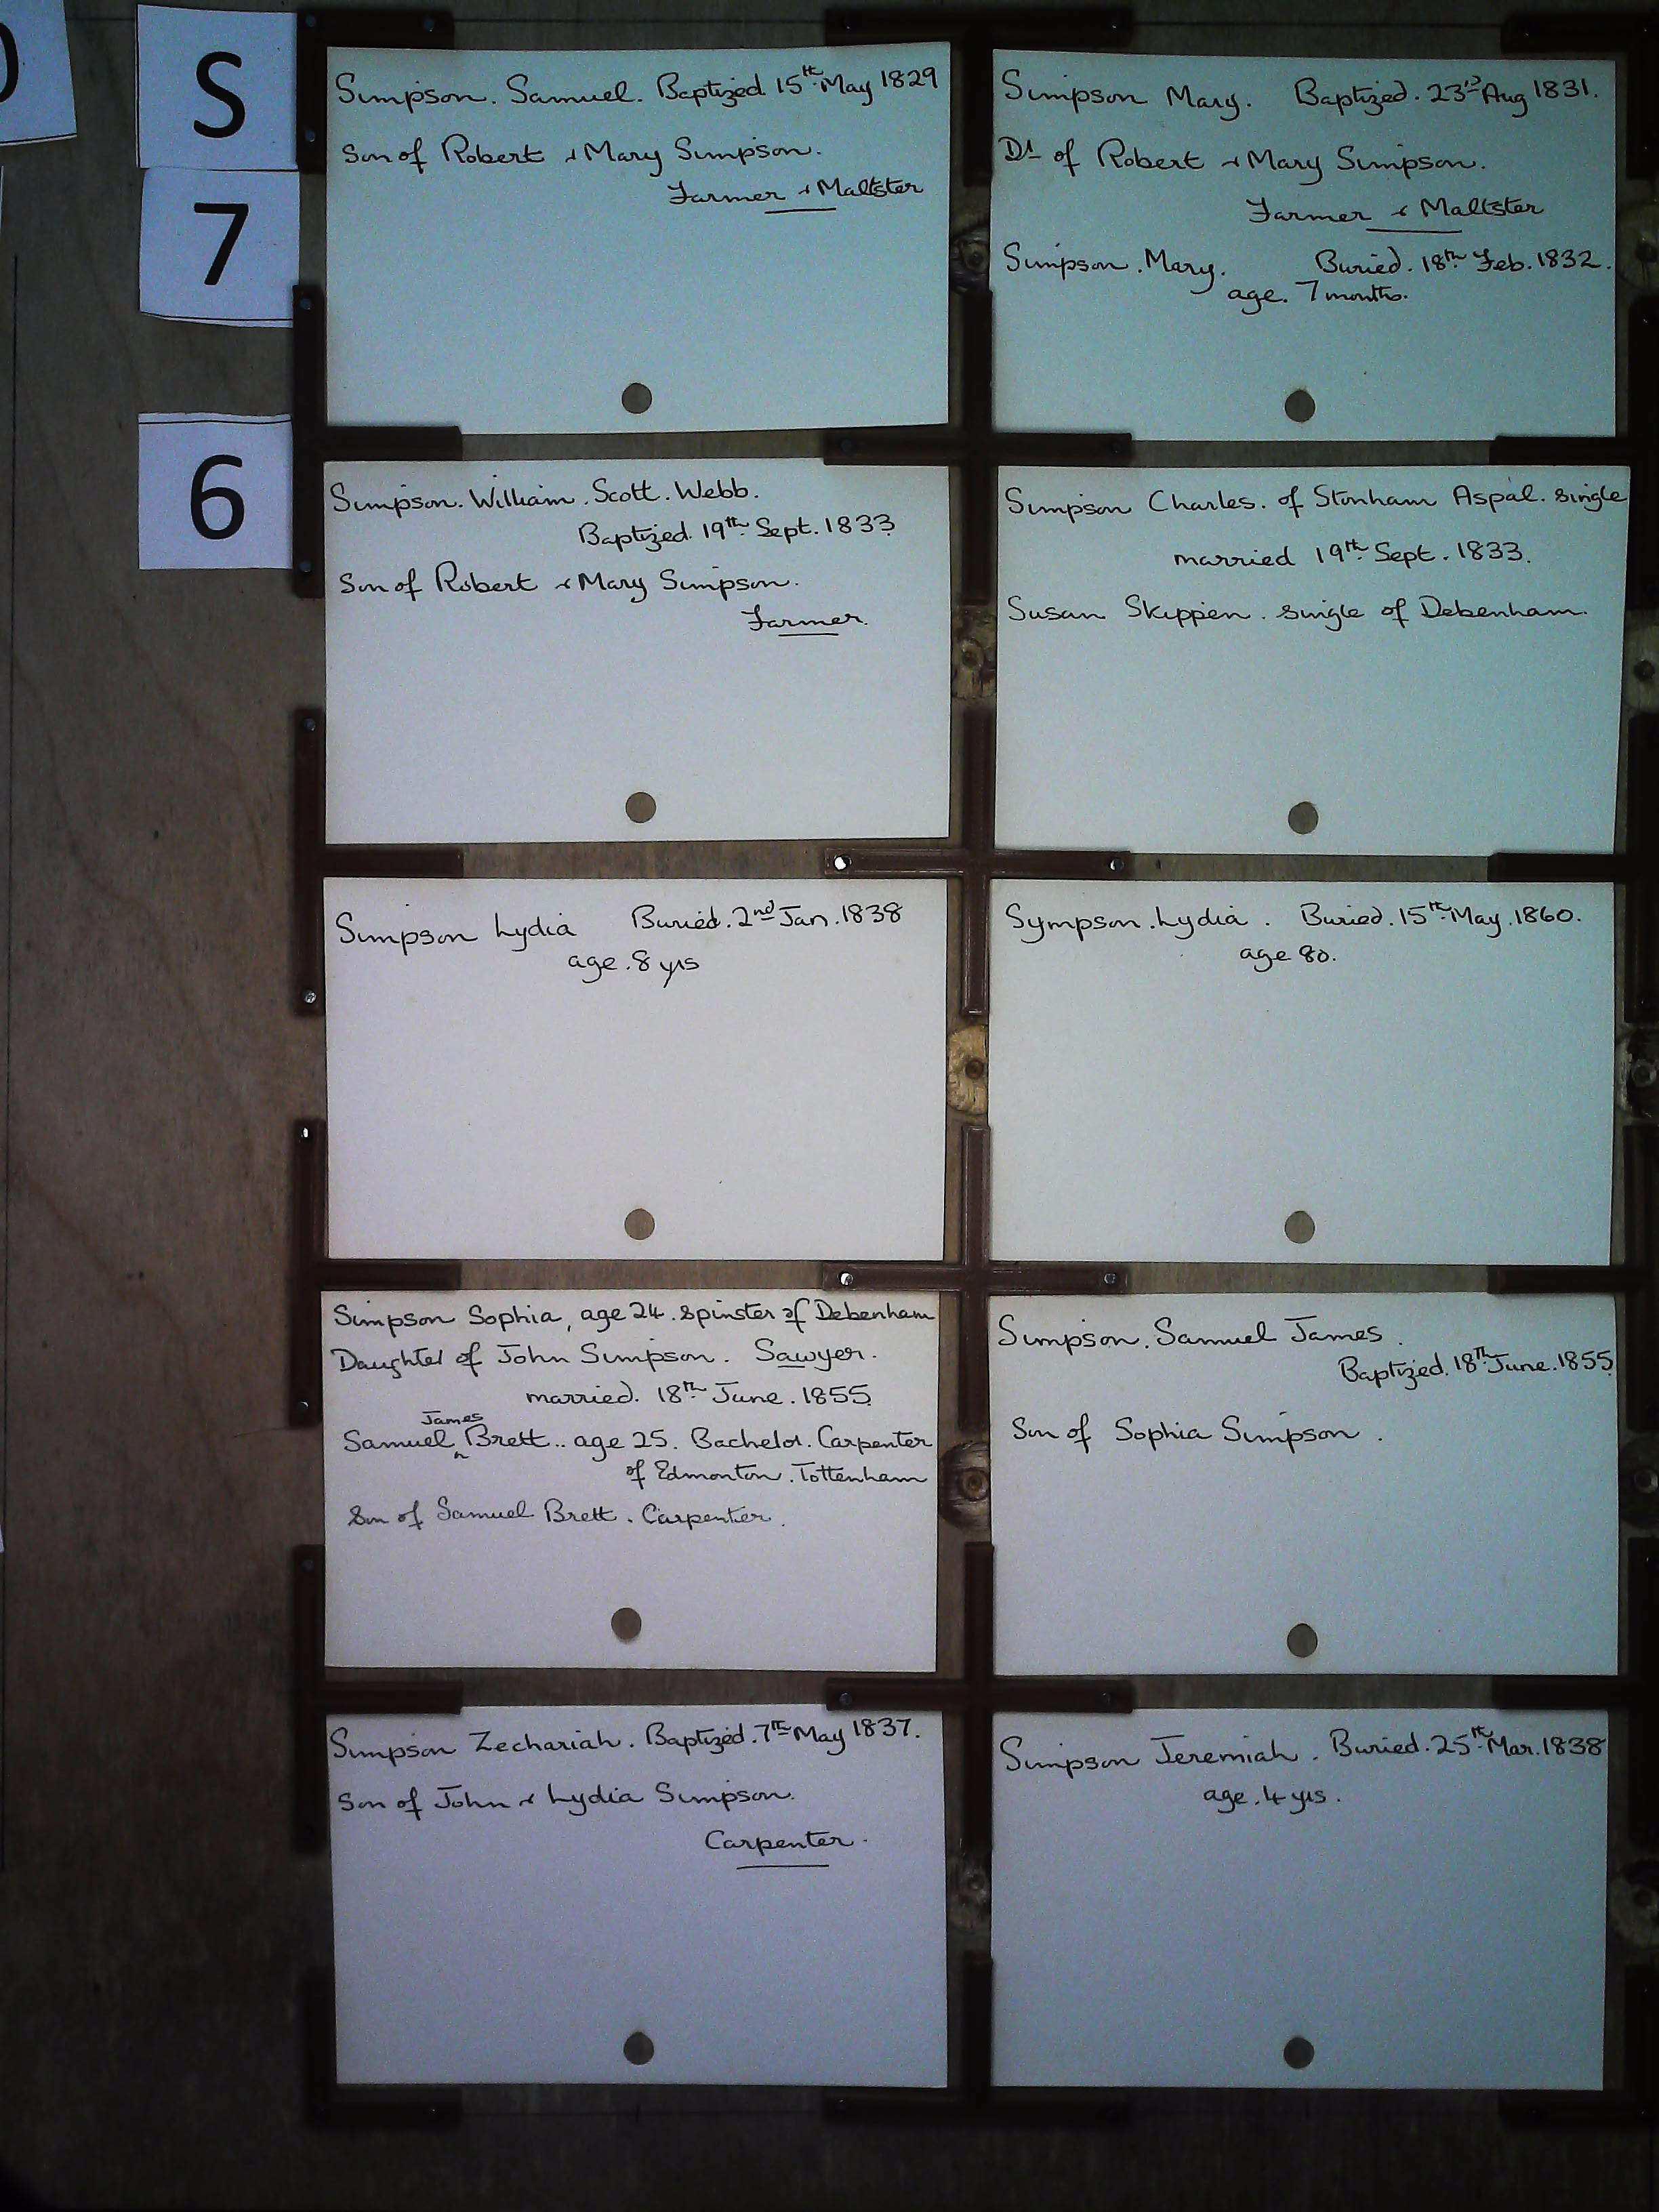 S
7
6
Simpson. Samuel. Baptized 15th May 1829
Son of Robert & Mary Simpson.
Farmer & Maltster
Simpson Mary. Baptized. 23rd Aug 1831.
Dr of Robert & Mary Simpson.
Farmer & Maltster
Simpson. Mary. Buried. 18th Feb. 1832.
age. 7 months.
Simpson. William. Scott. Webb.
Baptized. 19th Sept. 1833
Son of Robert & Mary Simpson.
Farmer.
Simpson Charles. of Stonham Aspal. single
married 19th Sept. 1833.
Susan Skippen. single of Debenham.
Simpson Lydia Buried. 2nd Jan. 1838
age. 8 yrs
Sympson. Lydia. Buried. 15th May. 1860.
age 80.
Simpson Sophia, age 24. Spinster of Debenham
Daughter of John Simpson. Sawyer.
married. 18th June. 1855
James
Samuel Brett.. age 25. Bachelor. Carpenter
of Edmonton. Tottenham
Son of Samuel Brett. Carpenter.
Simpson. Samuel James.
Baptized. 18th June. 1855
Son of Sophia Simpson.
Simpson Zechariah. Baptized. 7th May 1837.
Son of John & Lydia Simpson.
Carpenter.
Simpson Jeremiah. Buried. 25th Mar. 1838
age. 4 yrs.